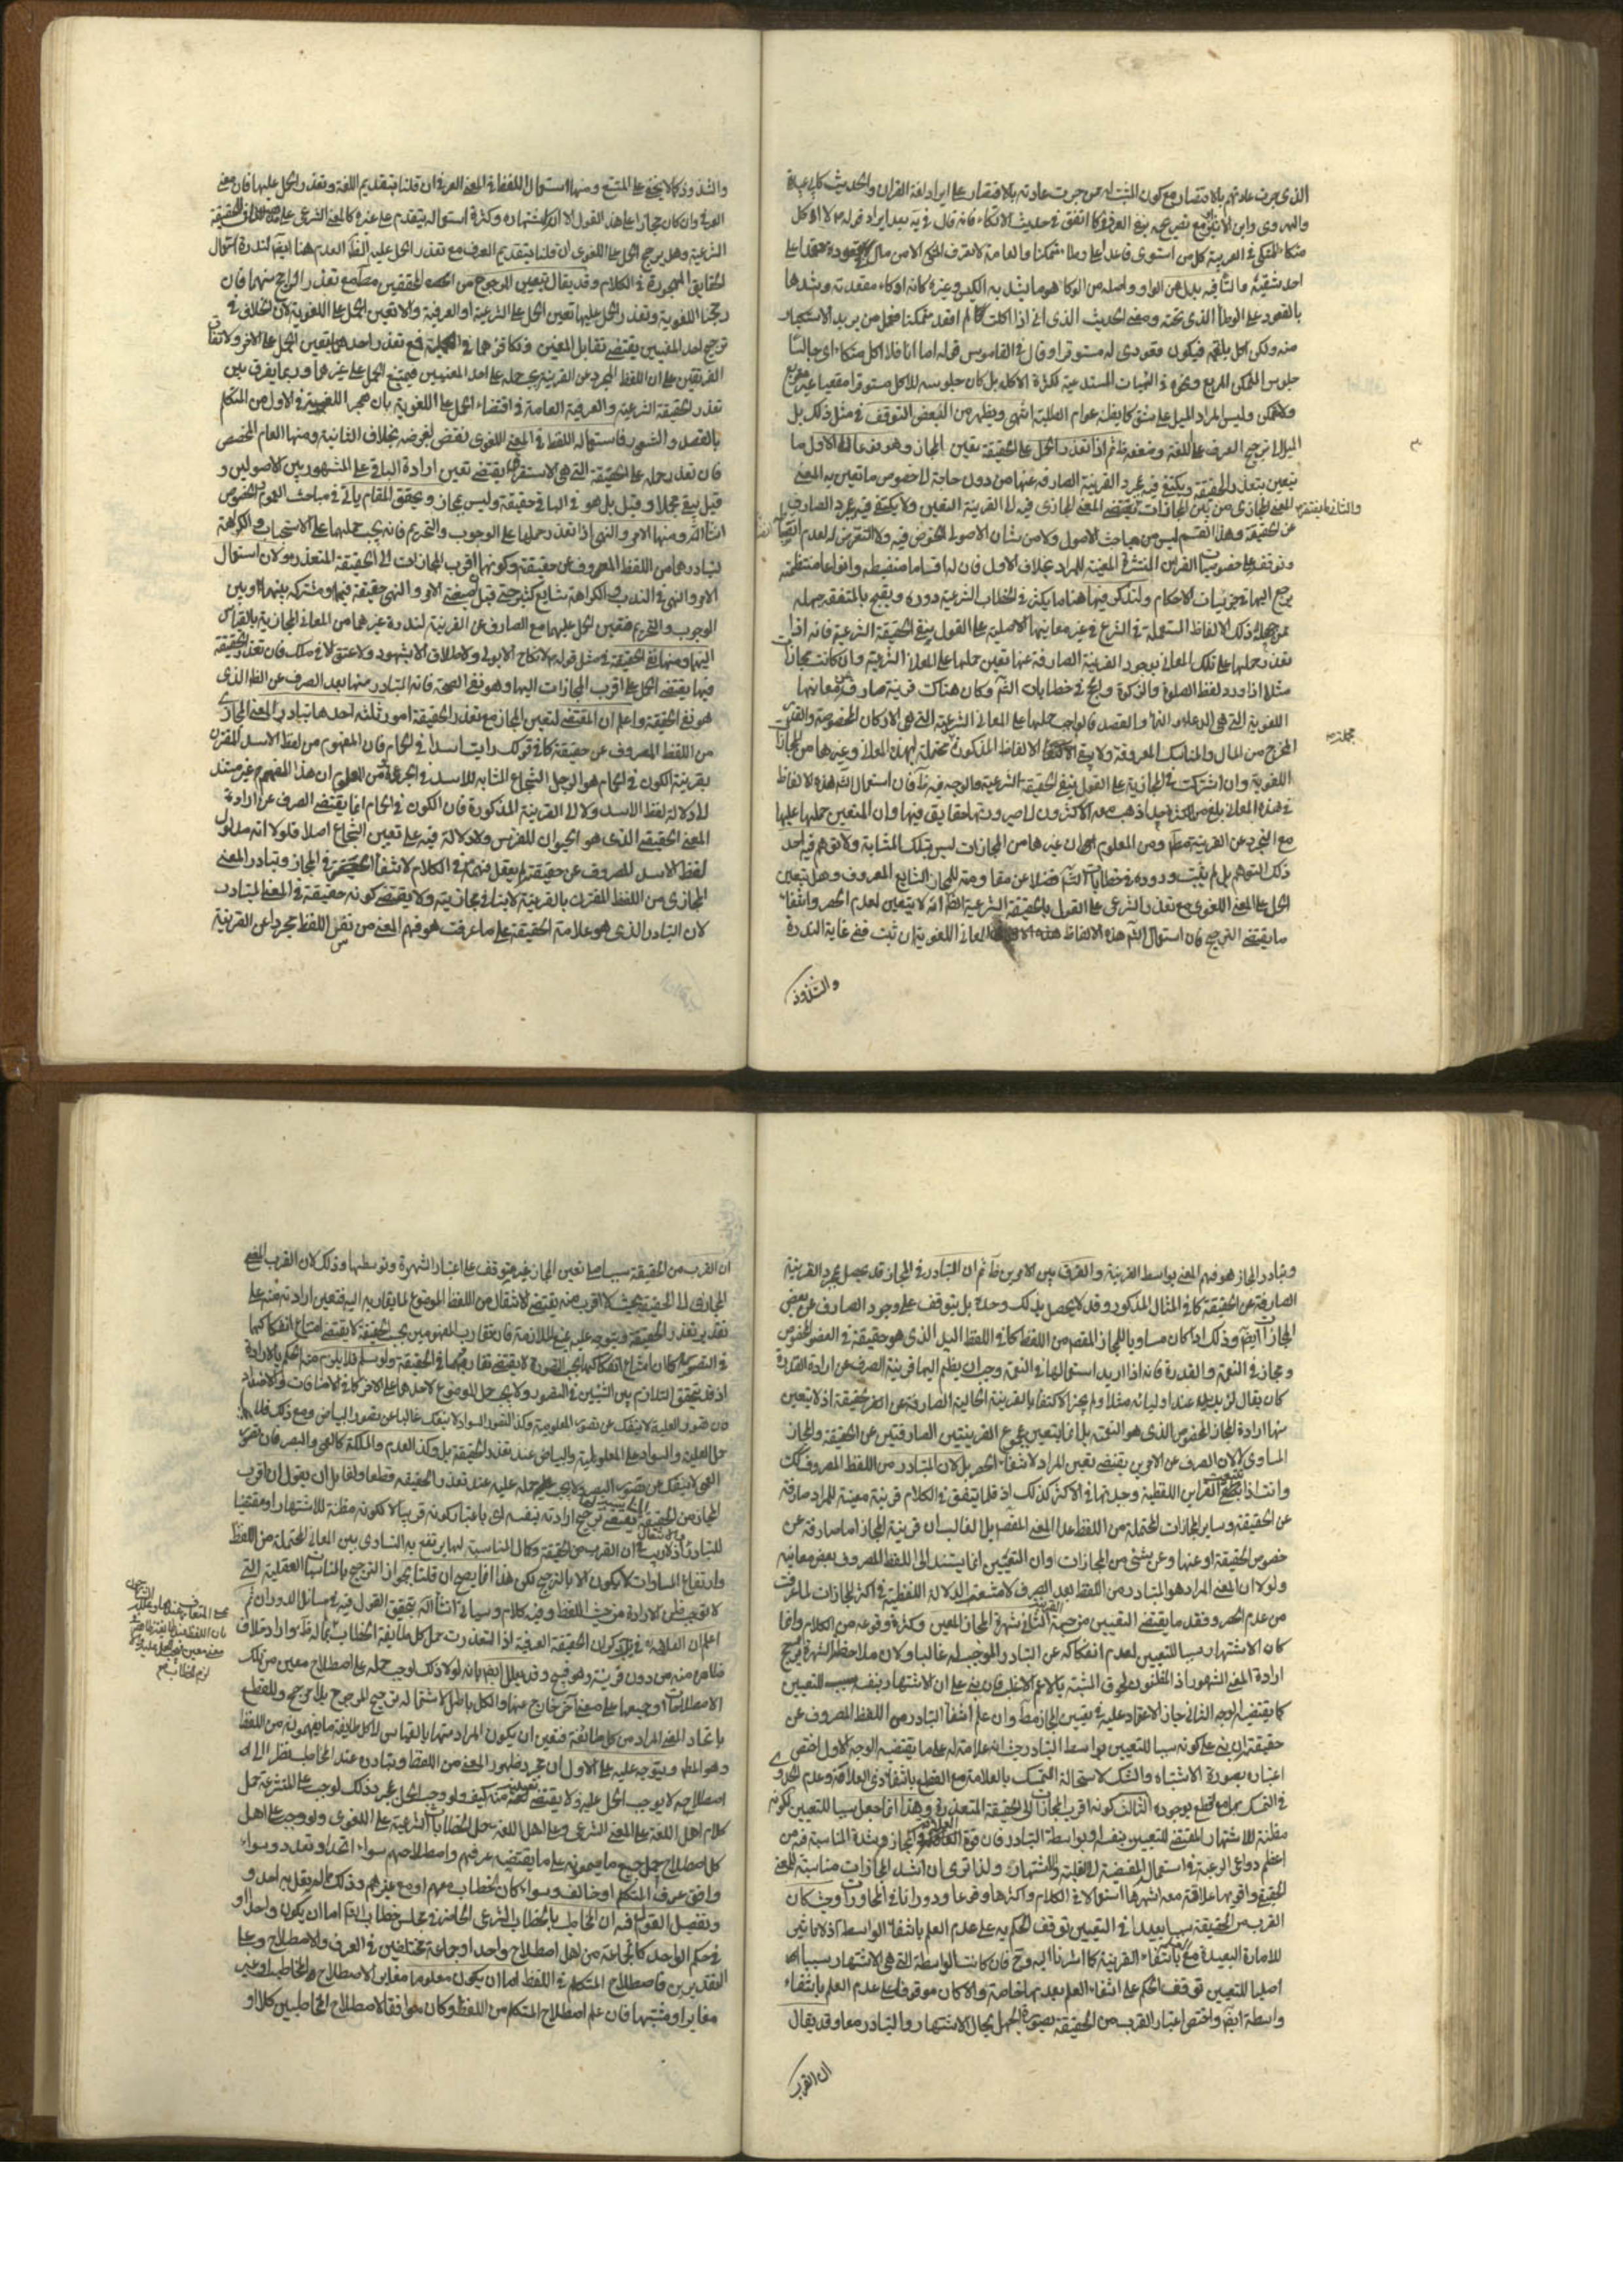 الذى جرت عادتهم بالاقتصار مع كون المثبت له ممن جرت عادته بالاقتصار على ايراد لغة القران والحديث كابى عبيدة
والهروى وابن الاثير مع تصريحهم بنفى العرف كما اتفق فى حديث الاتكاء فانه قال فى يه بعد ايراد قوله م لا اكل
متكئا المتكى فى العربية كل من استوى قاعدا على وطاء متمكنا والعامة لا تعرف المتكى الا من مال فى قعوده معتمدا على
احد شقيه والتاء فيه بدل من الواو واصله من الوكا هو ما يشد به الكيس وغيره كانه اوكاء مقعدته وشدها
بالقعود على الوطاء الذى تحته ومعنى الحديث الذى انى اذا اكلت لم اقعد متمكنا فعل من يريد الاستكثار
منه ولكن اكل بلغة فيكون قعودى له مستوفزا وقال فى القاموس قوله اما انا فلا اكل متكئا اى جالسا
جلوس المتمكن المتربع ونحوه من الهيئات المستدعية لكثرة الاكل بل كان جلوسه للاكل مستوفزا مقعيا غير متربع
ولا متمكن وليس المراد الميل على شق كما يظنه عوام الطلبة انتهى ويظهر من البعض التوقف فى مثل ذلك بل
الميل الى ترجيح العرف على اللغة وضعفه ظ ثم اذا تعذر الحمل على الحقيقة تعين المجاز وهو نوعان الاول ما
يتعين بتعذر الحقيقة ويكتفى فيه بمجرد القرينة الصارفة عنها من دون حاجة الى خصوص ما تعين به المعنى
والثانى ما يفتقر المعنى المجازى من بين المجازات فيه الى القرينة التعيين ولا يكتفى فيه بمجرد الصارف
عن الحقيقة وهذا القسم ليس من مباحث الاصول ولا من شان الاصولى الخوض فيه ولا التعرض له لعدم انضباطه
وتوقفه على خصوصيات القرائن المنتشرة المعينة للمراد بخلاف الاول فان له اقساما منضبطة وانواعا منتظمة
يرجع اليها فى جزئيات الاحكام ولنذكر فيها هنا ما يكثر فى الخطاب الشرعية دوره ويقبح بالمتفقه جهله
فمن جملة ذلك الالفاظ المستعملة فى الشرع فى غير معانيها الاصلية على القول بنفى الحقيقة الشرعية فانه اذا
تعذر حملها على تلك المعانى بوجود القرينة الصارفة عنها تعين حملها على المعانى الشرعية وان كانت مجازات
مثلا اذا ورد لفظ الصلوة والزكوة والحج فى خطابات الش وكان هناك قرينة صارفة عن معانيها
اللغوية التى هى الدعاء والنماء والقصد فالواجب حملها على المعانى الشرعية التى هى الاركان المخصوصة والقدر
المخرج من المال والمناسك المعروفة ولا يبقى الالفاظ المذكورة محتملة لهذه المعانى وغيرها من المجازات
مجملة
اللغوية وان اشتركت فى المجازية على القول بنفى الحقيقة الشرعية والوجه فيه ظ فان استعمال الش هذه الالفاظ
فى هذه المعانى بلغ من الكثرة حدا ذهب معه الاكثرون الى صيرورتها حقايق فيها وان المتعين حملها عليها
مع التجرد عن القرينة مط ومن المعلوم ان غيرها من المجازات ليس بتلك المثابة ولا توهم فيه احد
ذلك التوهم بل لم يثبت وروده فى خطابات الش فضلا عن مقاومته للمجاز الشايع المعروف وهل يتعين
الحمل على المعنى اللغوى مع تعذر الشرعى على القول بالحقيقة الشرعية الظ انه لا يتعين لعدم الحصر وانتفاء
ما يقتضى الترجيح فان استعمال الش هذه الالفاظ فى المعانى اللغوية ان ثبت ففى غاية الندرة
والشذوذ
والشذوذ كما لا يخفى على المتتبع ومنها استعمال اللفظ فى المعنى العرفى ان قلنا بتقديم اللغة وتعذر الحمل عليها فان معنى
العرفى وان كان مجازا على هذا القول الا ان اشتهاره وكثرة استعماله يتقدم على غيره كالمعنى الشرعى على الحقيقة
الشرعية وهل يرجح الحمل على اللغوى ان قلنا بتقديم العرف مع تعذر الحمل عليه الظ العدم هنا ايضا لندرة استعمال
الحقايق المهجورة فى الكلام وقد يقال بتعين المرجوح من الحقيقتين مط مع تعذر الراجح منهما فان
رجحنا اللغوية وتعذر الحمل عليها تعين الحمل على الشرعية او العرفية والا تعين الحمل على اللغوية لان الخلاف فى
ترجيح احد المعنيين يقتضى تقابل المعنين وتكافؤهما فى الجملة فمع تعذر احدهما يتعين الحمل على الاخر ولاتفاق
الفريقين على ان اللفظ المجرد عن القرينة يجب حمله على احد المعنيين فيمتنع الحمل على غيرهما وربما يفرق بين
تعذر الحقيقة الشرعية والعرفية العامة فى اقتضاء الحمل على اللغوية بان هجر اللغوية فى الاول من المتكلم
بالقصد والشعور فاستعماله اللفظ فى المعنى اللغوى نقض لغرضه بخلاف الثانية ومنها العام المخصص
فان تعذر حمله على الحقيقة التى هى الاستغراق يقتضى تعين ارادة الباقى على المشهور بين الاصوليين و
قيل يبقى مجملا وقيل بل هو فى الباقى حقيقة وليس بمجاز وتحقيق المقام ياتى فى مباحث العموم والخصوص
انشا الله ومنها الامر والنهى اذا تعذر حملها على الوجوب والتحريم فانه يجب حملهما على الاستحباب والكراهة
لتبادرهما من اللفظ المصروف عن حقيقته وكونهما اقرب المجازات الى الحقيقة المتعذرة ولان استعمال
الامر والنهى فى الندب والكراهة شايع كثير حتى قيل ان صيغة الامر والنهى حقيقة فيهما او مشتركة بينهما وبين
الوجوب والتحريم فتعين الحمل عليهما مع الصارف عن القرينة لندرة غيرهما من المعانى المجازية بالقياس
اليهما ومنها نفى الحقيقة فى مثل قوله م لا نكاح الا بولى ولا طلاق الا بشهود ولا عتق الا فى ملك فان تعذر الحقيقة
فيها يقتضى الحمل على اقرب المجازات اليها وهو نفى الصحة فانه المتبادر منها بعد الصرف عن الظ الذى
هو نفى الحقيقة واعلم ان المقتضى لتعين المجاز مع تعذر الحقيقة امور ثلثة احدها تبادر المعنى المجازى
من اللفظ المصروف عن حقيقته كما فى قولك رايت اسدا فى الحمام فان المفهوم من لفظ الاسد المقترن
بقرينة الكون فى الحمام هو الرجل الشجاع المشابه للاسد فى الجرءة ومن المعلوم ان هذا المفهوم غير مستند
الى دلالة لفظ الاسد ولا الى القرينة المذكورة فان الكون فى الحمام انما يقتضى الصرف عن ارادة
المعنى الحقيقى الذى هو الحيوان المفترس ولا دلالة فيه على تعيين الشجاع اصلا فلولا انه مدلول
لفظ الاسد المصروف عن حقيقته لم يعقل فهمه فى الكلام لانتفاء الحصر فى المجاز وتبادر المعنى
المجازى من اللفظ المقترن بالقرينة لا ينافى مجازيته ولا يقتضى كونه حقيقة فى المعنى المتبادر
لان التبادر الذى هو علامة الحقيقة على ما عرفت هو فهم المعنى من نفس اللفظ مجردا عن القرينة
وتبادر المجاز هو فهم المعنى بواسطة القرينة والفرق بين الامرين ظ ثم ان التبادر فى المجاز قد يحصل بمجرد القرينة
الصارفة عن الحقيقة كما فى المثال المذكور وقد لا يحصل بذلك وحده بل يتوقف على وجود الصارف عن بعض
المجازات ايضا وذلك اذا كان مساويا للمجاز المقصود من اللفظ كما فى اللفظ اليد الذى هو حقيقة فى العضو المخصوص
ومجاز فى النعمة والقدرة فانه اذا اريد استعمالها فى النعمة وجب ان يضم اليها قرينة الصرف عن ارادة القدرة
كان يقال لزيد يد عندى اولسانه مثلا ولم يجز الاكتفاء بالقرينة الحالية الصارفة عن الحقيقة اذ لا يتعين
منها ارادة المجاز المخصوص الذى هو النعمة بل انما يتعين بمجموع القرينتين الصارفتين عن الحقيقة والمجاز
المساوى لا لان الصرف عن الامرين يقتضى تعين المراد لانتفاء الحصر بل لان المتبادر من اللفظ المصروف كك
وانت اذا تتبعت القراين اللفظية وجدتها فى الاكثر كذلك اذ قلما يتفق فى الكلام قرينة معينة للمراد صارفة
عن الحقيقة وساير المجازات المحتملة من اللفظ عدا المعنى المقصود بل الغالب ان قرينة المجاز اما صارفة عن
خصوص الحقيقة او عنها وعن شئ من المجازات وان التعيين انما يستند الى اللفظ المصروف بعض معانيه
ولولا ان المعنى المراد هو المتبادر من اللفظ بعد الصرف لامتنعت الدلالة اللفظية فى اكثر المجازات لما عرفت
من عدم الحصر وفقد ما يقتضى التعيين من جهة القرينة الثانى شهرة المجاز المعين وكثرة وقوعه من الكلام وانما
كان الاشتهار سببا للتعيين لعدم انفكاكه عن التبادر الموجب له غالبا ولان ملاحظة الشهرة ترجح
ارادة المعنى المشهور اذ المظنون لحوق المشتبه بالاعم الاغلب فان بنى على ان الاشتهار بنفسه سبب للتعيين
كما يقتضيه الوجه الثانى جاز الاعتماد عليه فى تعيين المجاز مط وان علم انتفاء التبادر من اللفظ المصروف عن
حقيقته وان بنى على كونه سببا للتعيين بواسطة التبادر حيث انه علامة له على ما يقتضيه الوجه الاول اختص
اعتباره بصورة الاشتباه والشك لاستحالة التمسك بالعلامة مع القطع بانتفاء ذى العلامة وعدم الجدوى
فى التمسك بها مع القطع بوجوده الثالث كونه اقرب المجازات الى الحقيقة المتعذرة وهذا انما جعل سببا للتعيين لكونه
مظنة للاشتهار المقتضى للتعيين بنفسه او بواسطة التبادر فان قوة العلاقة والمجاز وشدة المناسبة فيه من
اعظم دواعى الرغبة فى استعمال المفضية الى الغلبة والاشتهار ولذا ترى ان اشد المجازات مناسبة للمعنى
الحقيقى واقويها علاقة معه اشهرها استعمالا فى الكلام واكثرها وقوعا ودورانا فى المحاورات وحيث كان
القرب من الحقيقة سببا بعيدا فى التعيين توقف الحكم به على عدم العلم بانتفاء الواسطة اذ لا تاثير
للامارة البعيدة مع انتفاء القريبة كما اشرنا اليه وح فان كانت الواسطة التى هى الاشتهار سببا
اصليا للتعيين توقف الحكم على انتفاء العلم بعدمها خاصة والا كان موقوفا على عدم العلم بانتفاء
واسطة ايضا واختص اعتبار القرب من الحقيقة بصورة الجهل بحال الاشتهار والتبادر معا وقد يقال
ان القرب
ان القرب من الحقيقة سبب اصلى لتعين المجاز غير متوقف على اعتبار الشهرة وتوسطها وذلك لان القرب المعنى
المجازى الى الحقيقة بحيث لا اقرب منه يقتضى الانتقال من اللفظ الموضوع لما يقاربه اليه فتعين ارادته منه على
تقدير تعذر الحقيقة ويتوجه عليه منع الملازمة فان تقارب المفهومين بحسب الحقيقة لا يقتضى امتناع انفكاكهما
فى التصور كما ان امتناع انفكاكهما بحسب التصور لا يقتضى تقاربهما فى الحقيقة ولو سلم فلا يلزم منه الحكم بالارادة
اذ قد يتحقق التلازم بين الشيئين فى التصور ولا يجب حمل الموضوع لاحدهما على الاخر كما فى الاضافات والاضداد
فان تصور العلية لا ينفك عن تصور المعلولية وكذا تصور السواد لا ينفك غالبا عن تصور البياض ومع ذلك فلا
حمل العلية والسواد على المعلولية والبياض عند تعذر الحقيقة بل وكذا العدم والملكة كالعمى والبصر فان تصور
العمى لا ينفك عن تصور البصر ولا يجب حمله عليه عند تعذر الحقيقة قطعا ولقائل ان يقول ان اقرب
المجاز من الحقيقة يقتضى ترجيح ارادته بنفسه اى باعتبار كونه قريبا لا لكونه مظنة للاشتهار او مقتضيا
للتبادر اذ لا ريب فى ان القرب من الحقيقة وكمال المناسبة لها يرتفع به التساوى بين المعانى المحتملة من اللفظ
وارتفاع المساوات لا يكون الا بالترجيح لكن هذا انما يصح ان قلنا بجواز الترجيح بالمناسبات العقلية التى
لا توجب ظن الارادة من حيث اللفظ وفيه كلام وسياتى انشا الله تحقيق القول فيه فى مسائل الدوران ثم
اعلم ان العلامة فى يه ذكر ان الحقيقة العرفية اذا تعذرت حمل كل طايفة الخطاب على ما له ظ وارادة خلاف
ظاهره منه من دون قرينة وهو قبيح وقد يعلل ايضا بانه لولا ذلك لوجب حمله على اصطلاح معين من تلك
الاصطلاحات او جميعها على معنى اخر خارج عنها والكل باطل لاشتماله ترجيح المرجوح بلا مرجح وللقطع
باتحاد المعنى المراد من كل طائفة فتعين ان يكون المراد منها بالقياس الى كل طايفة ما يفهمونه من اللفظ
وهو المط ويتوجه عليه على الاول ان مجرد ظهور المعنى من اللفظ وتبادره عند المخاطب نظرا الى
اصطلاحه لا يوجب الحمل عليه ولا يقتضى تعينه منه كيف ولو وجب الحمل بمجرد ذلك لوجب على المتشرعة حمل
كلام اهل اللغة على المعنى الشرعى وعلى اهل اللغة حمل الخطابات الشرعية على اللغوى ولو وجب على اهل
كل اصطلاح حمل جميع ما يسمعونه على ما يقتضيه عرفهم واصطلاحهم سواء اتحد او تعدد وسواء
وافق عرف المتكلم او خالف وسواء كان الخطاب معهم او مع غيرهم وذلك ما لم يقل به احد و
وتفصيل القول فيه ان المخاطب بالخطاب الشرعى الحاضر فى مجلس خطاب الش اما ان يكون واحدا او
فى حكم الواحد كالجماعة من اهل اصطلاح واحد او جماعة مختلفين فى العرف والاصطلاح وعلى
التقديرين فاصطلاح المتكلم فى اللفظ اما ان يكون معلوما مغايرا لاصطلاح المخاطب او غير
مغاير او مشتبها فان علم اصطلاح المتكلم من اللفظ وكان موافقا لاصطلاح المخاطبين كلا او